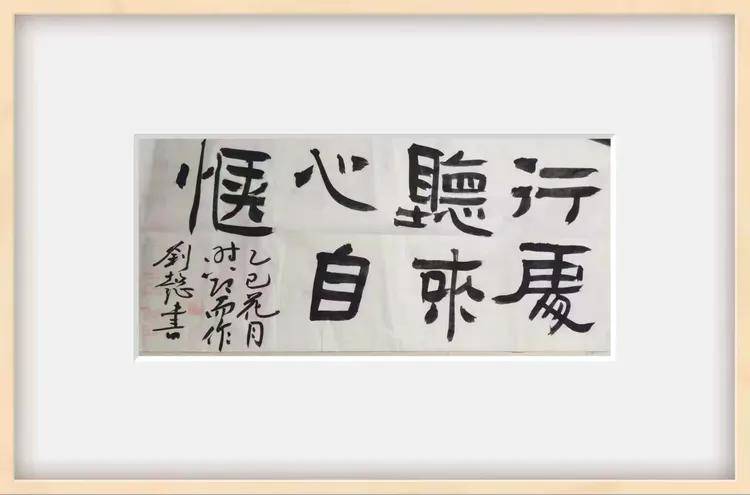 行處
聽來
心自
愜
乙巳花月
时 而作
劉懿書